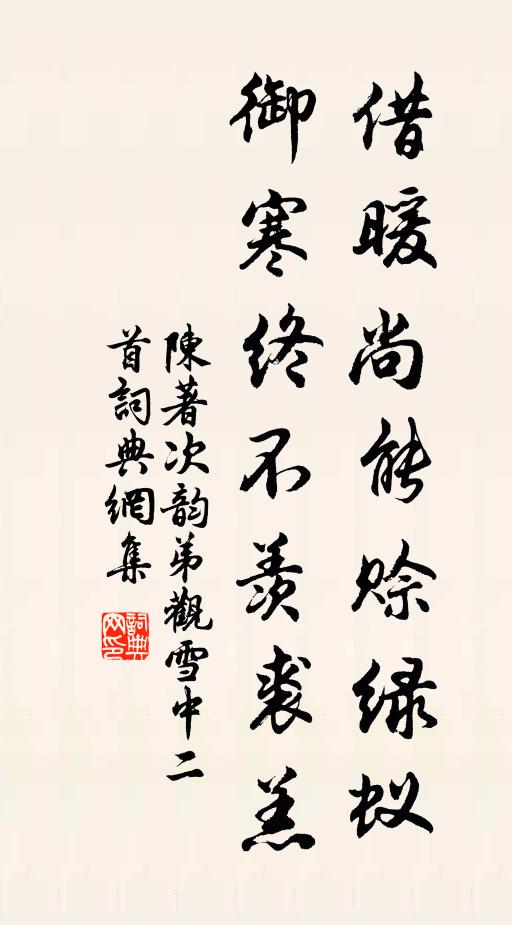 借暖尚能赊绿蚁
御寒终不羡裘羔
陳著次韵弟觀雪中二
首詞典網集
詞典网印